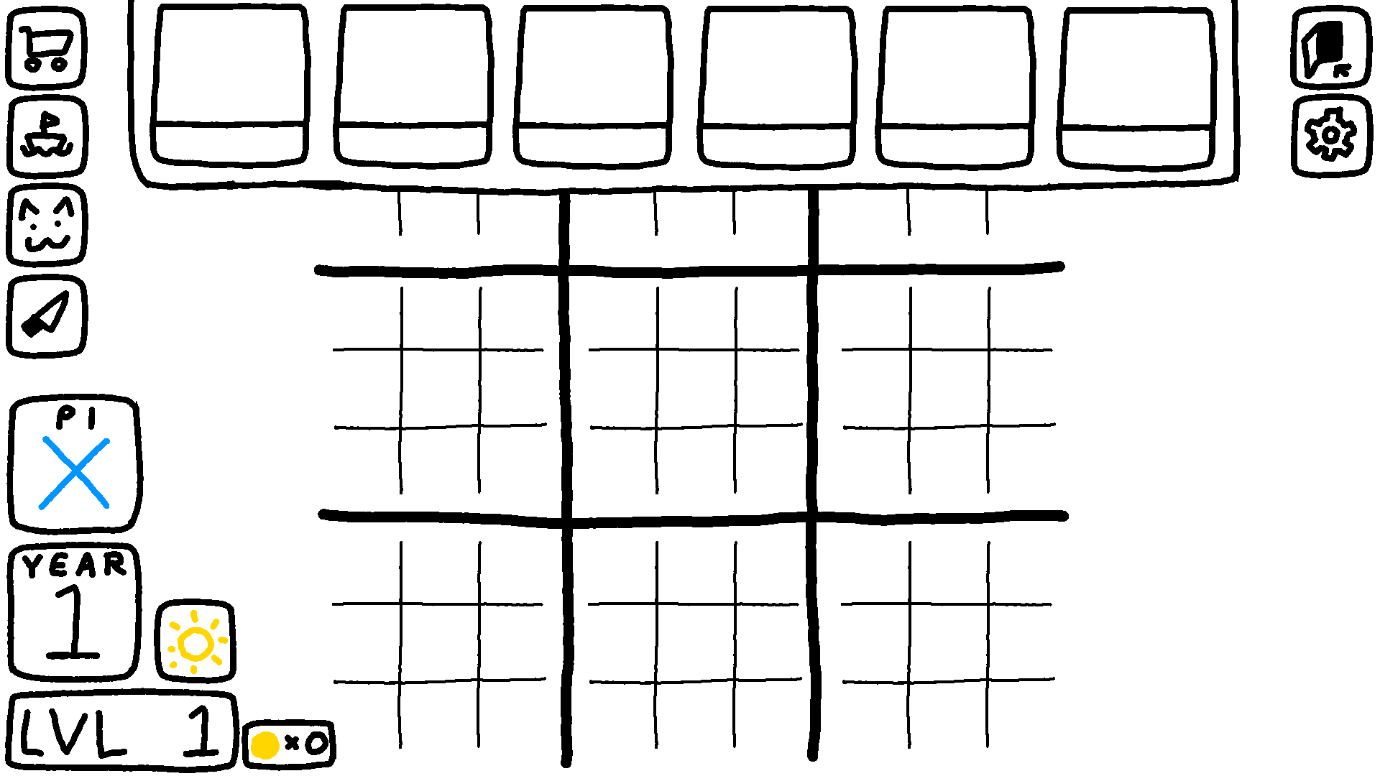 P1
YEAR
1
LVL 1
×0